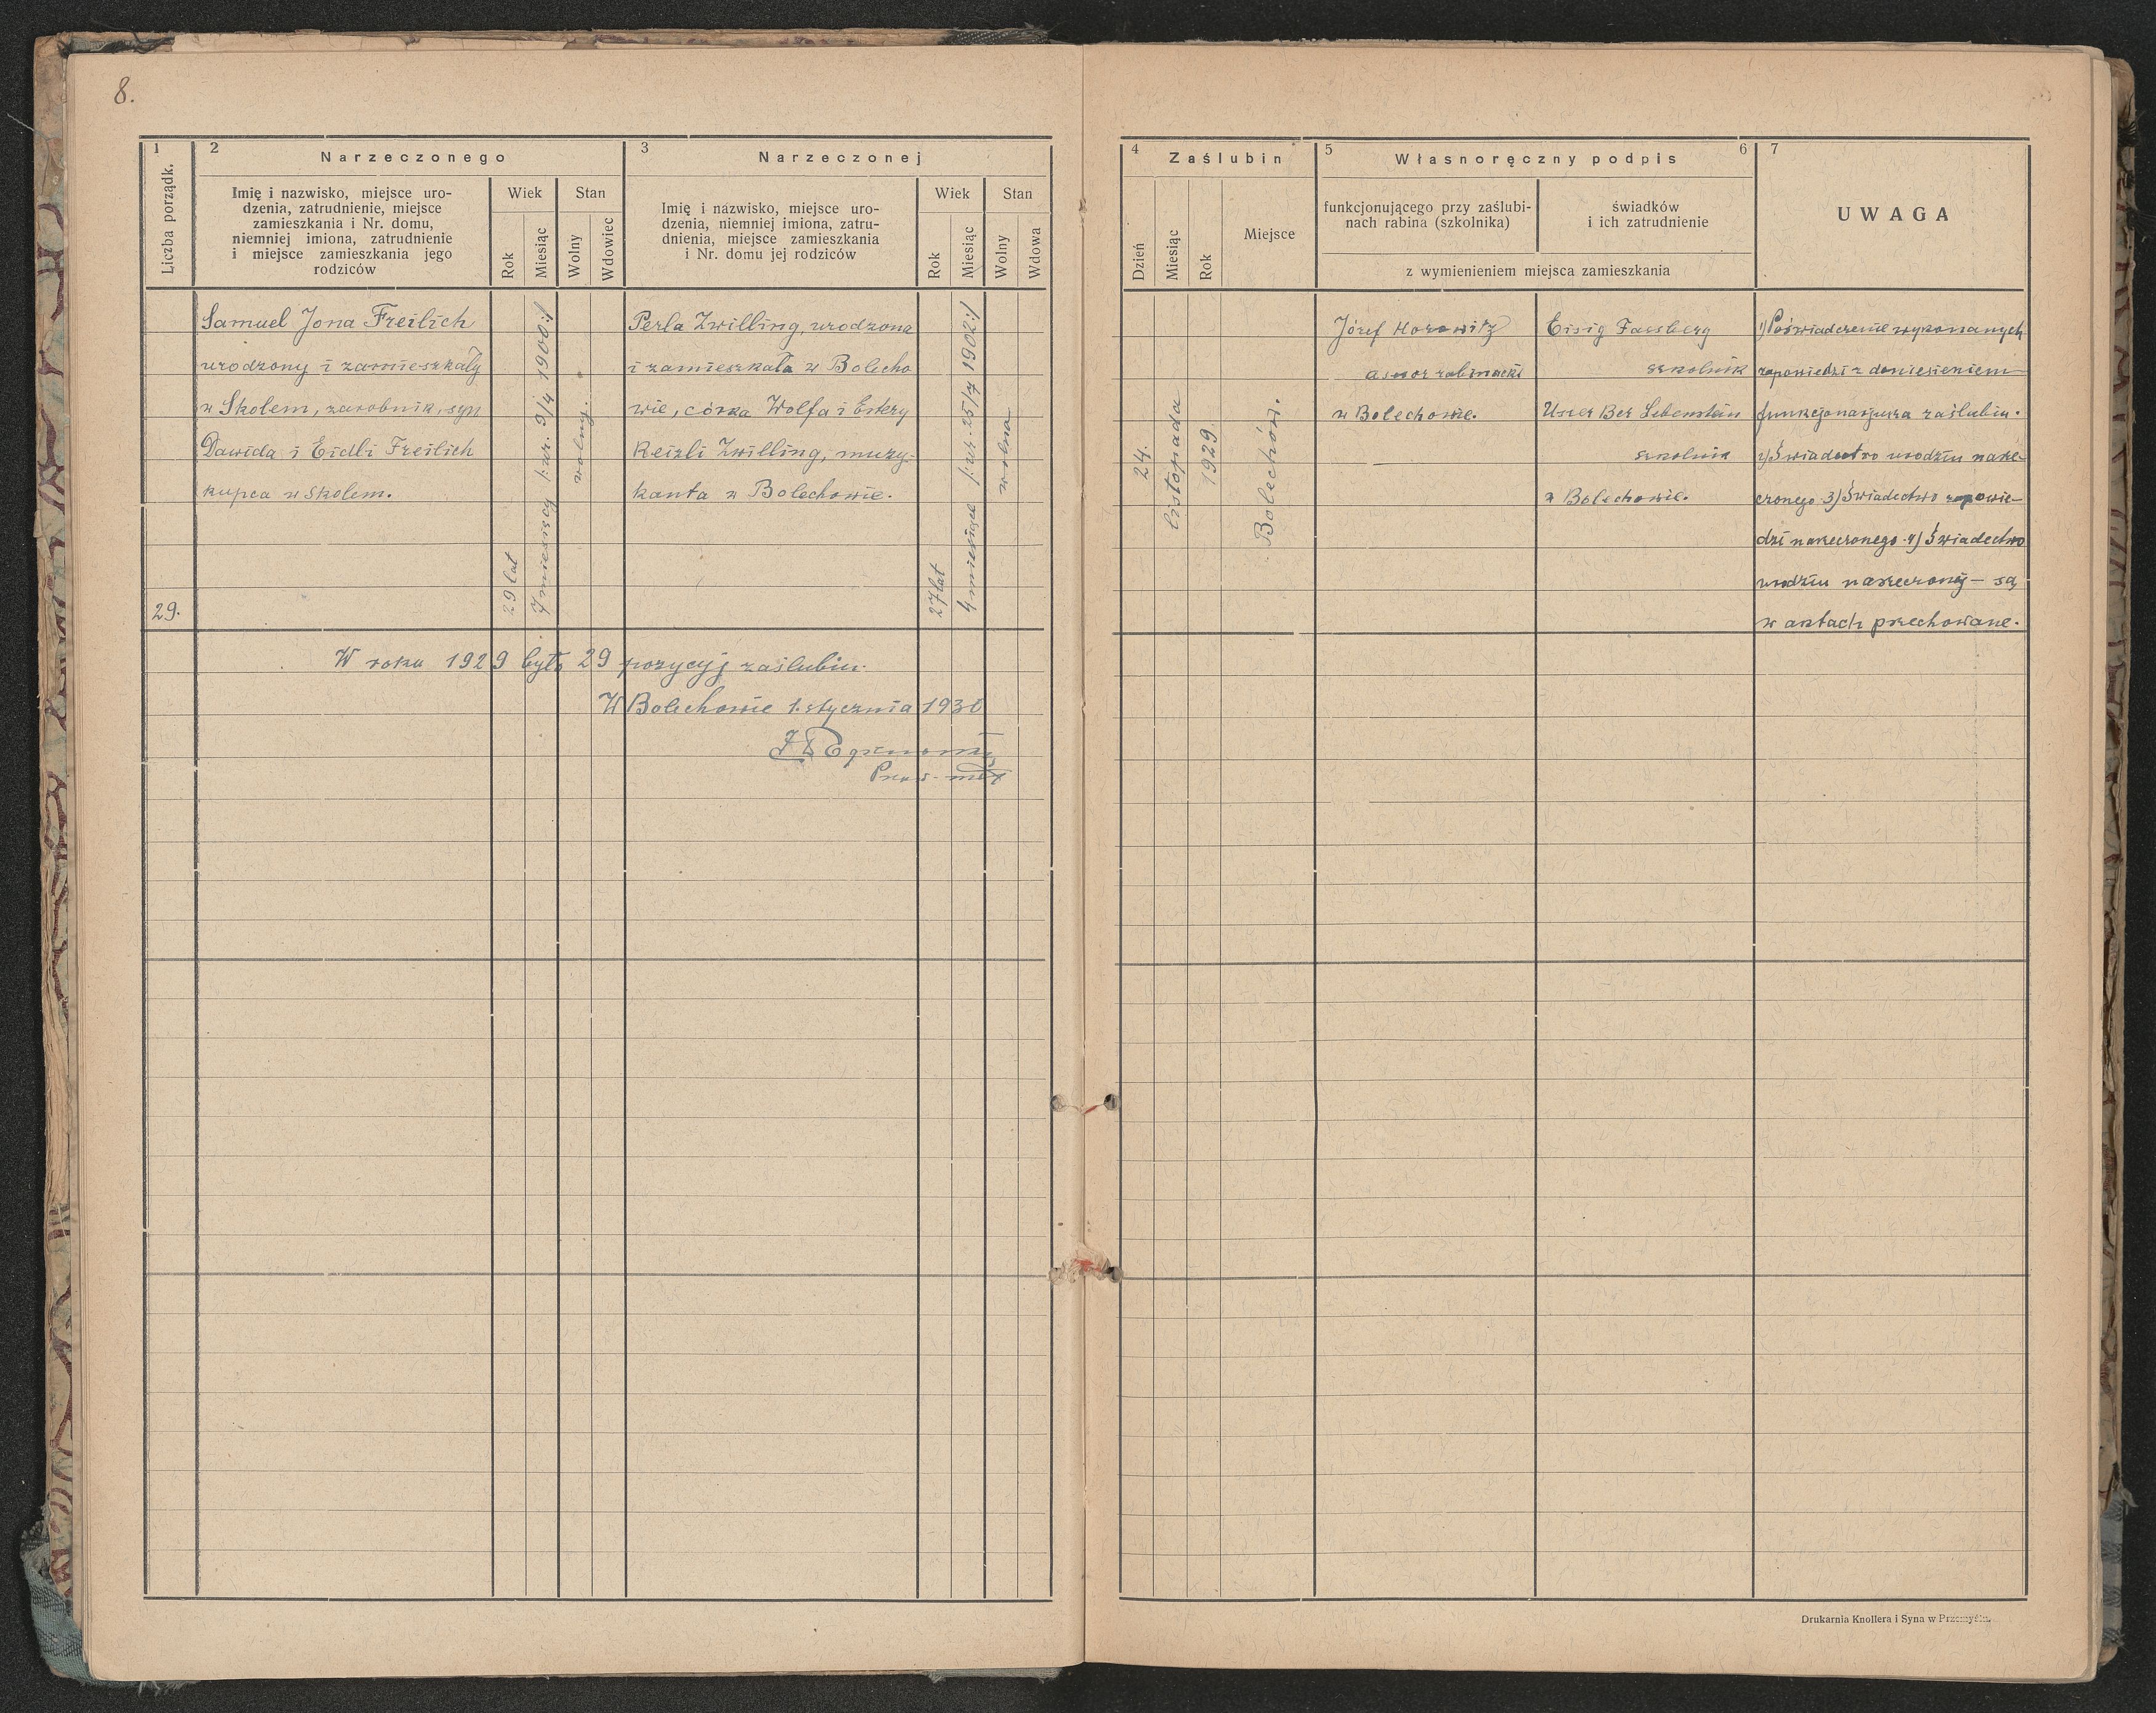 8.
1
Liczba porządk.
2
Narzeczonego
Imię i nazwisko, miejsce uro-
dzenia, zatrudnienie, miejsce
zamieszkania i Nr. domu,
niemniej imiona, zatrudnienie
i miejsce zamieszkania jego
rodziców
Wiek
Rok
Miesiąc
Stan
Wolny
Wdowiec
3
Narzeczonej
Imię i nazwisko, miejsce uro-
dzenia, niemniej imiona, zatru-
dnienia, miejsce zamieszkania
i Nr. domu jej rodziców
Wiek
Rok
Miesiąc
Stan
Wolny
Wdowa
29.
Samuel Jona Freilich
urodzony i zamieszkały
w Skolem, zarobnik, syn
Dawida i Eidli Freilich
kupca w Skolem.
29 lat
7 miesięcy /:ur. 9/4 1900:/
wolny.
Perla Zwilling, urodzona
i zamieszkała w Bolecho
wie, córka Wolfa i Estery
Reizli Zwilling, muzy-
kanta w Bolechowie.
27 lat
4 miesiące /:ur. 25/7 1902:/
wolna
W roku 1929 było 29 pozycyj zaślubin.
W Bolechowie 1. stycznia 1930
4
Zaślubin
Dzień
Miesiąc
Rok
Miejsce
5
Własnoręczny podpis
6
funkcjonującego przy zaślubi-
nach rabina (szkolnika)
świadków
i ich zatrudnienie
z wymienieniem miejsca zamieszkania
7
UWAGA
24.
listopada
1929
Bolechów.
Józef Horowitz
asesor rabinacki
w Bolechowie.
Eisig Fassberg
szkolnik
Uszer Ber Lebenstein
szkolnik
w Bolechowie.
1) Poświadczenie wykonanych
zapowiedzi z doniesieniem
funkcjonarjusza zaślubin.
2) Świadectwo urodzin narze-
czonego 3) Świadectwo zapowie-
dzi narzeczonego 4) Świadectwo
urodzin narzeczonej — są
w aktach przechowane.
Drukarnia Knollera i Syna w Przemyślu.